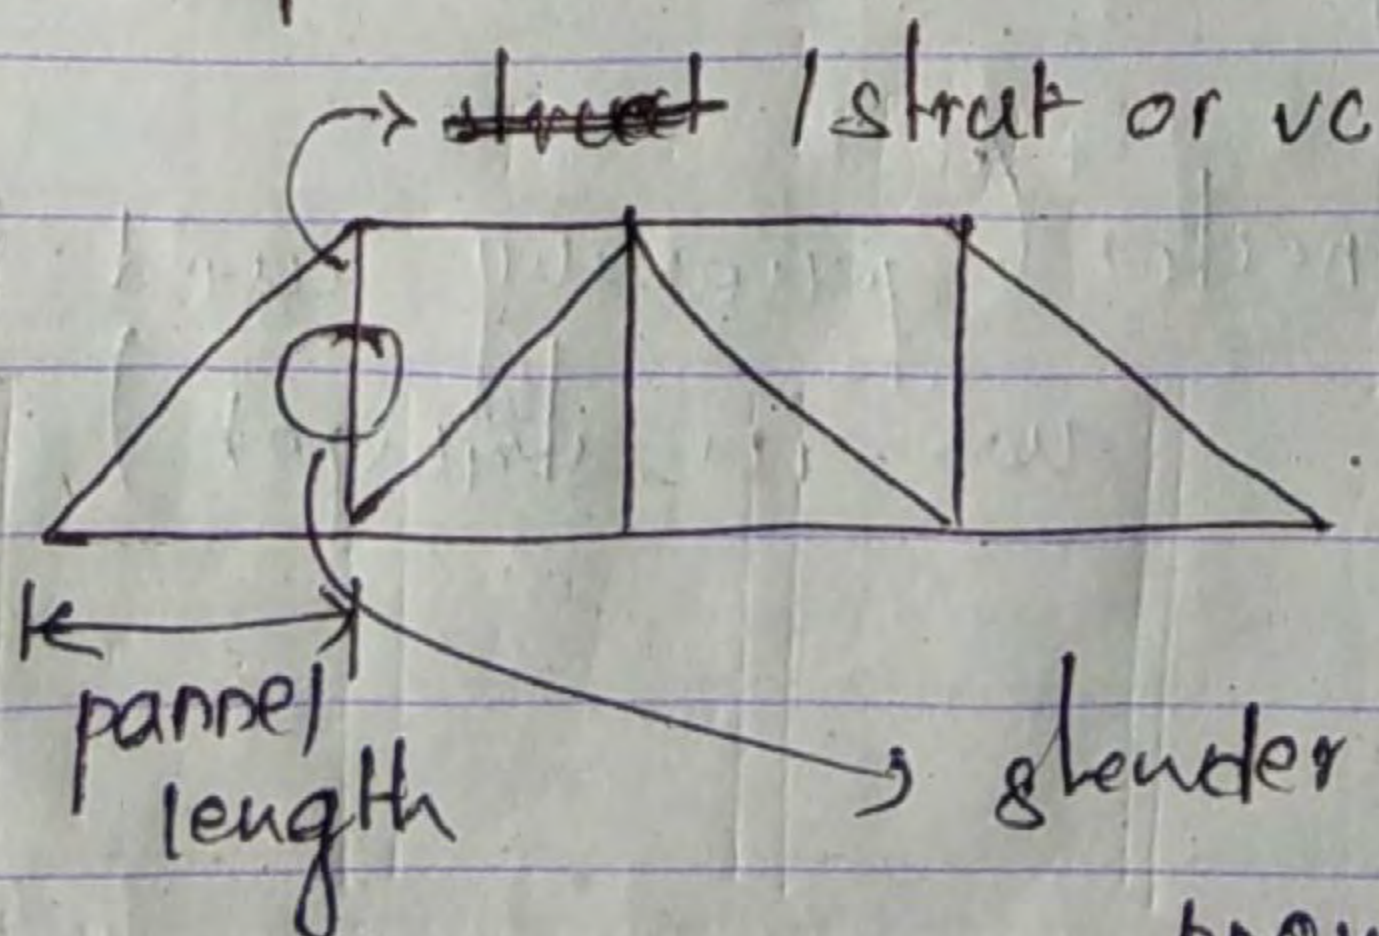 / strut or vc
pannel
length
slender